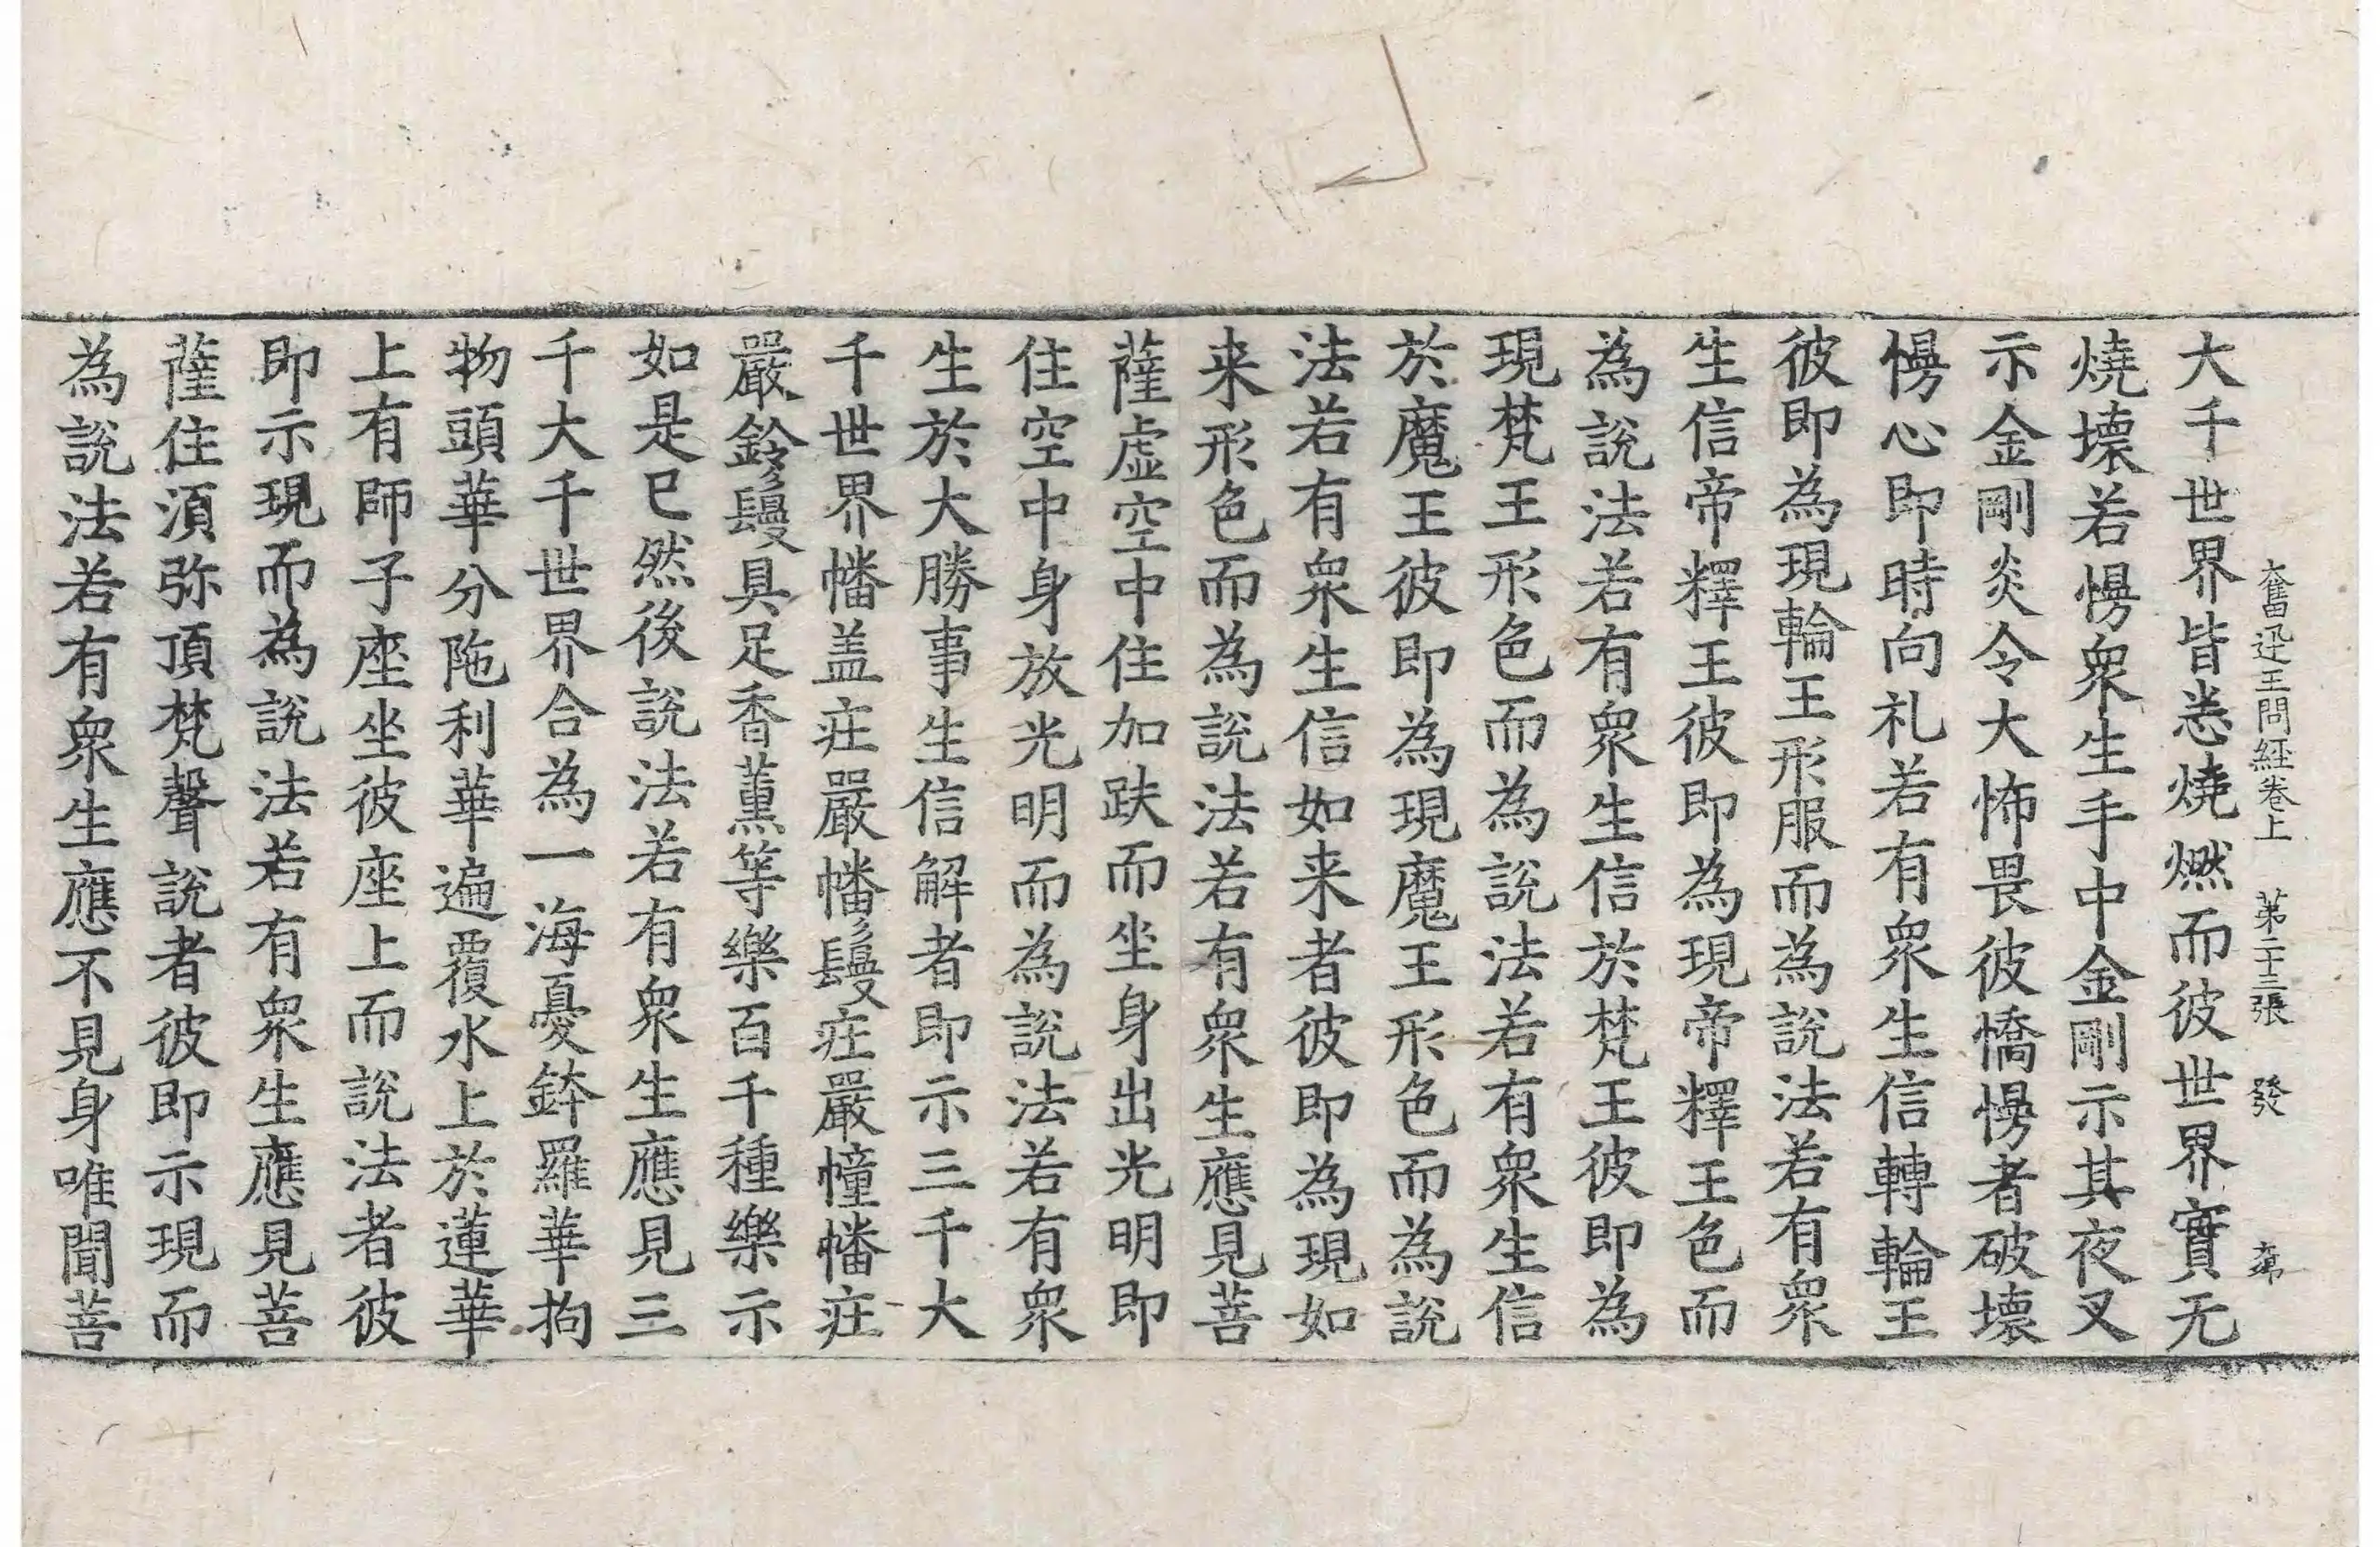 奮迅王問經卷上　第二十三張　發
大千世界皆悉燒燃而彼世界實无
燒壞若慢衆生手中金剛示其夜叉
示金剛炎令大怖畏彼憍慢者破壞
慢心即時向礼若有衆生信轉輪王
彼即為現輪王形服而為說法若有衆
生信帝釋王彼即為現帝釋王色而
為說法若有衆生信於梵王彼即為
現梵王形色而為說法若有衆生信
於魔王彼即為現魔王形色而為說
法若有衆生信如来者彼即為現如
来形色而為說法若有衆生應見菩
薩虛空中住加趺而坐身出光明即
住空中身放光明而為說法若有衆
生於大勝事生信解者即示三千大
千世界幡盖莊嚴幡鬘莊嚴幢幡莊
嚴鈴鬘具足香薰等樂百千種樂示
如是已然後說法若有衆生應見三
千大千世界合為一海憂鉢羅華拘
物頭華分陁利華遍覆水上於蓮華
上有師子座坐彼座上而說法者彼
即示現而為說法若有衆生應見菩
薩住湏弥頂梵聲說者彼即示現而
為說法若有衆生應不見身唯聞菩